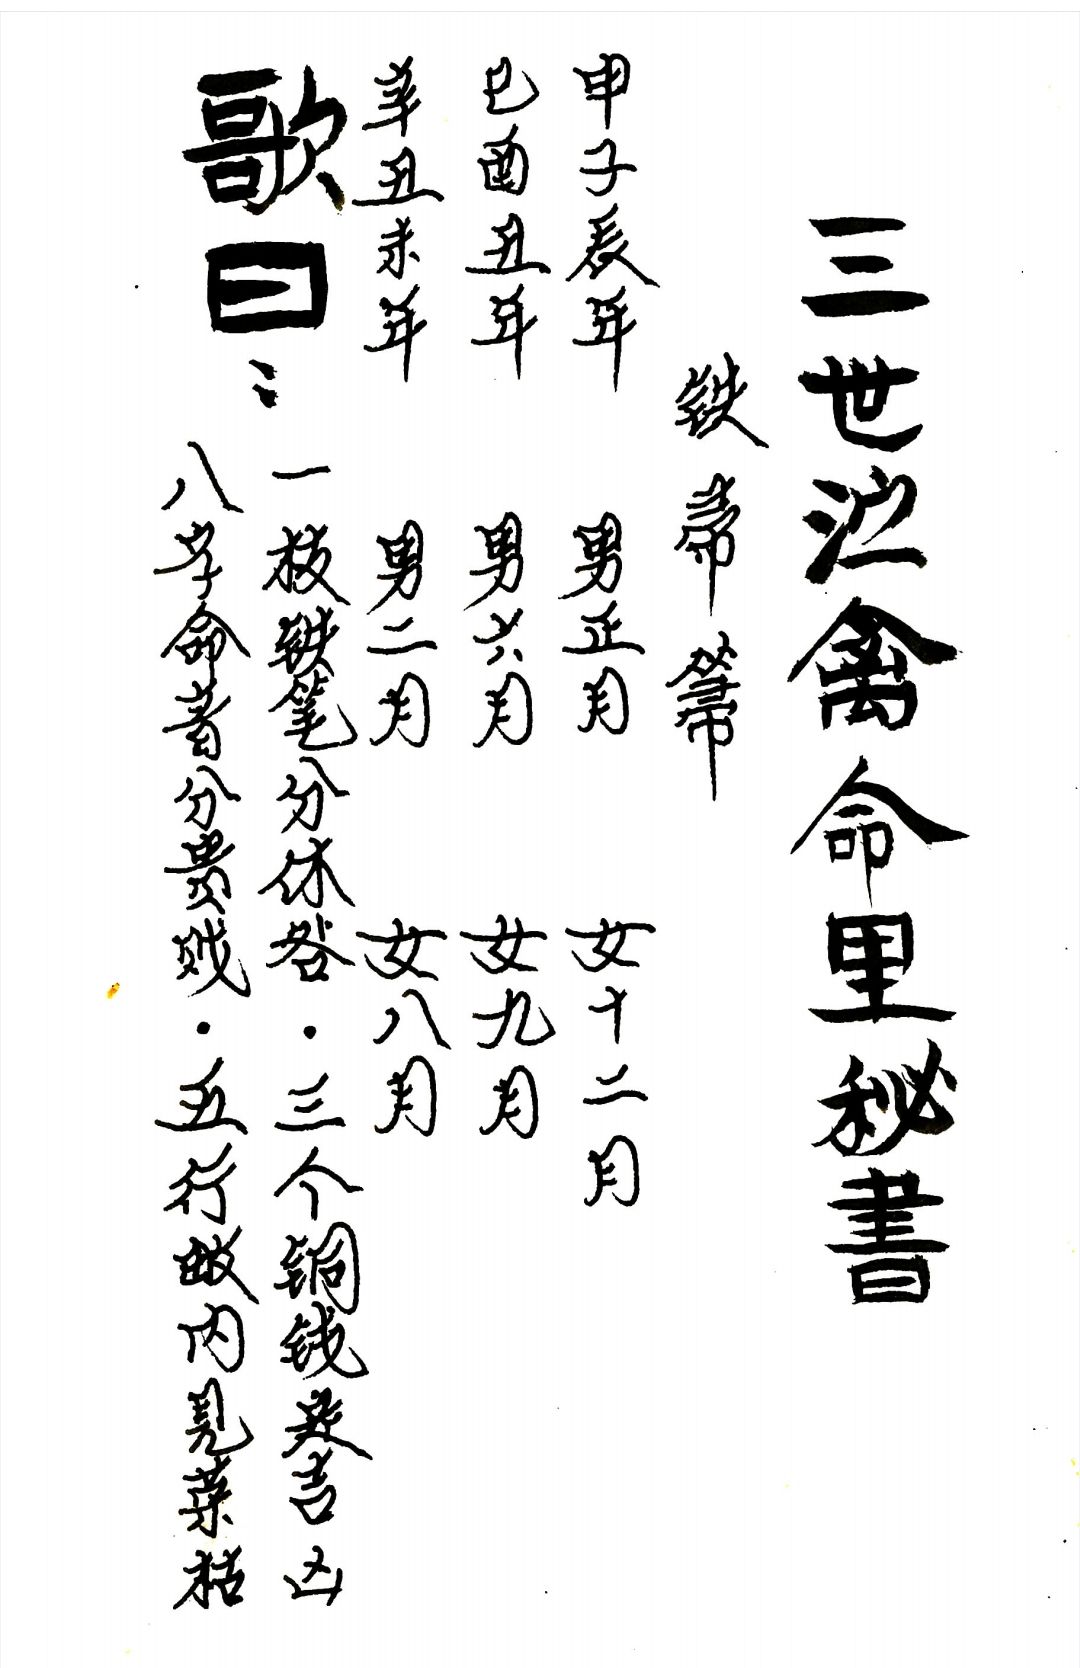 三世禽命里秘書
铁帚箒
申子辰年 男正月 女十二月
巳酉丑年 男六月 女九月
辛丑未年 男二月 女八月
歌曰：
一枝铁笔分休咎・三个铜钱定吉凶
八字命者分贵贱・五行内見荣枯